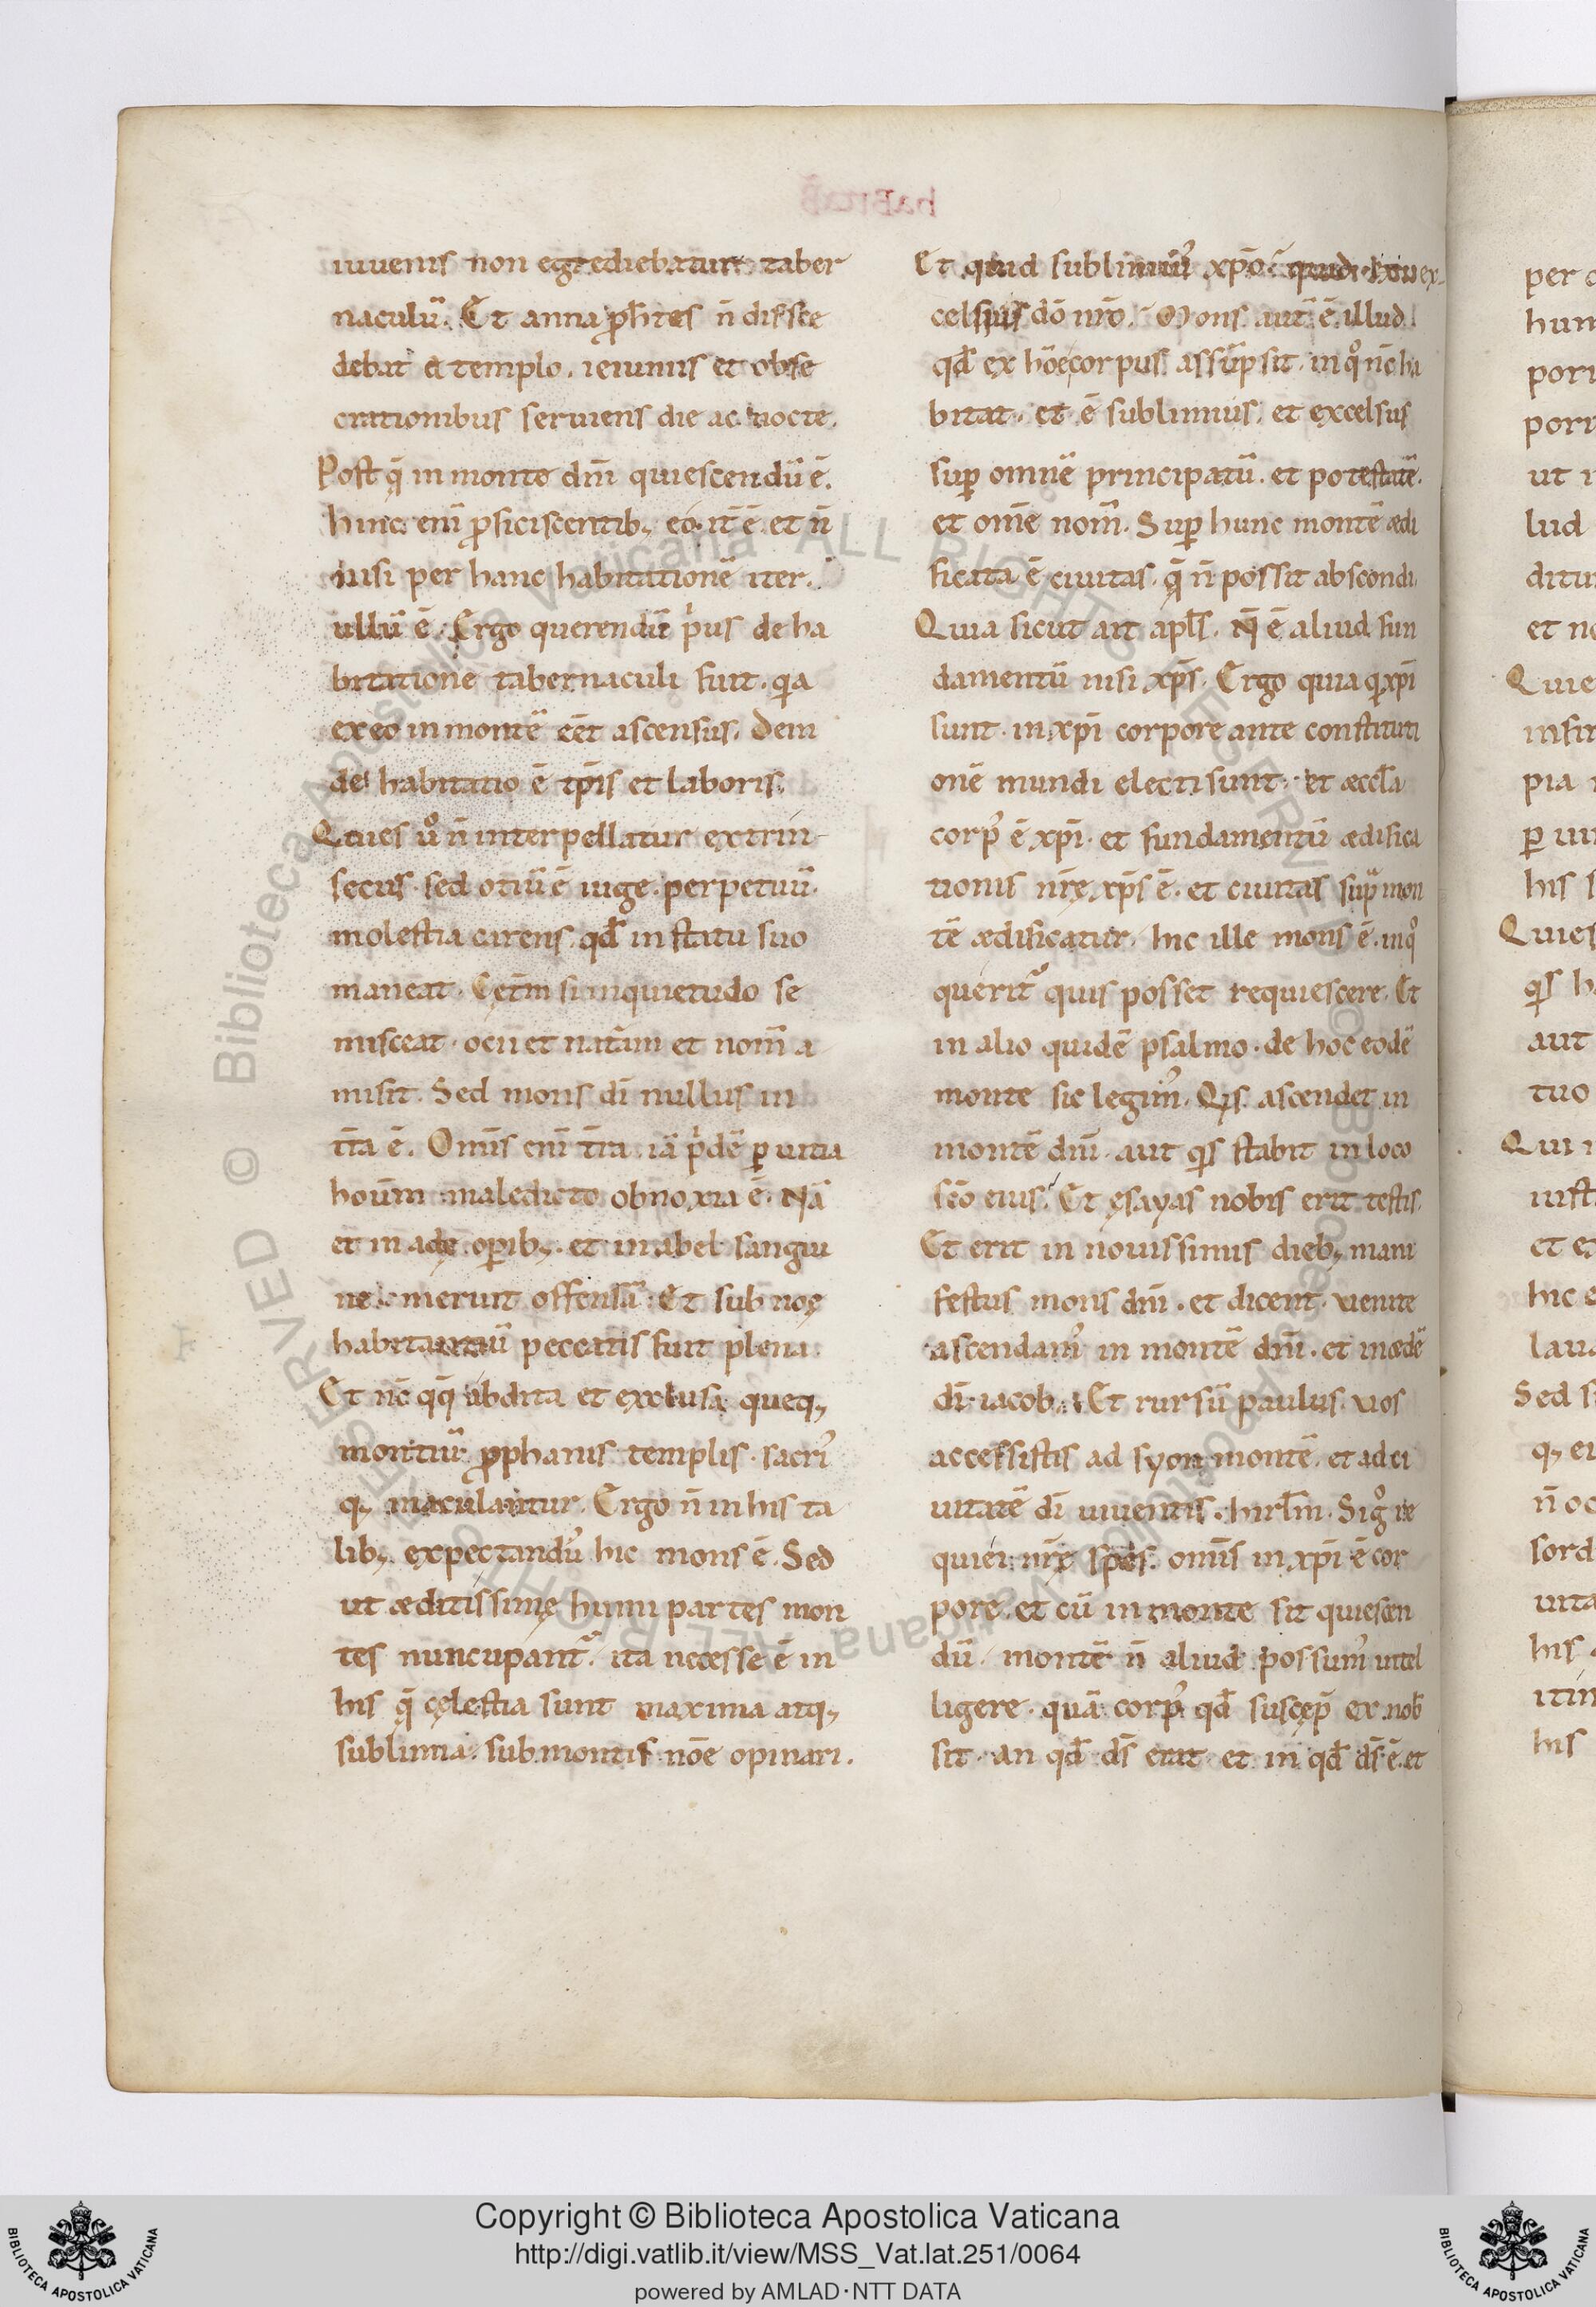 iuuenis non egrediebatur taber
naculū. Et anna ꝓh̄tes n̄ disce
debat a templo. ieiuniis et obse
crationibus seruiens die ac nocte.
Post q̄ in monte dn̄i quiescendū ē.
hinc enī ꝓficiscentib; eo itē ē et n̄
nisi per hanc habitationē iter
ullū ē. Ergo querendū pͥus de ha
bitatione tabernaculi fuit. qia
ex eo in montē eēt ascensus. Dein
de habitatio ē tp̄is et laboris.
Quies uͦ n̄ interpellatur extrin
secus. sed otiū ē iuge. perpetuū.
molestia carens. qd̄ in statu suo
maneat. Cęt̄m si inquietudo se
misceat. ocii et natāƺ et nom̄ a
misit. Sed mons dī nullus in
t̄ra ē. Om̄is enī t̄ra. iā pͥdē ꝑ uitia
hoūm maledicto obnoxia ē. Nā
et in adę opib;. et in abel sangui
ne meruit offensā. Et sub noę
habitantiū peccatis fuit plena.
Et nc̄ qq̄ abdita et exclusa queq;
montiū ꝓphanis templis. sacri᾽
q; maculantur. Ergo n̄ in his ta
lib;. expectandu᾽ hic mons ē. Sed
ut æditissimę humi partes mon
tes nuncupant᷑. ita necesse ē in
his q̄ cęlestia sunt maxima atq;
sublimia. sub montis nōe opinari.
Et quid sublimiu᾽ xp̄o
celsius dō nr̄o. Mons aut̄ ē illud
qd̄ ex hōe corpus assūpsit. in qͦ nc̄ ha
bitat. et ē sublimius. et excelsus
suꝑ omnē principatū. et potestatē.
et om̄e nom̄. Suꝑ hunc montē ædi
ficata ē ciuitas. q̄ n̄ possit abscondi.
Quia sicut ait apl̄s. Nq̄ ē aliud fun
damentū nisi xp̄s. Ergo quia q xp̄i
sunt. in xp̄i corpore ante constituti
onē mundi electi sunt. et æccl̄a
corp᾽ ē xp̄i. et fundamentū ædifica
tionis nr̄ę xp̄s ē. et ciuitas supᷓ mon
tē ædificatur. hic ille mons ē. in qͦ
querit᷑ quis posset requiescere. Et
in alio quidē psalmo. de hoc eodē
monte sic legim᾽. Qis ascendet in
montē dn̄i. aut qis stabit in loco
sc̄o eius. Et ęsayas nobis erit testis.
Et erit in nouissimis dieb; mani
festus mons dn̄i. et dicent. uenite
ascendam᾽ in montē dn̄i. et in ædē
dī iacob. Et rursū paulus. uos
accessistis ad syon montē. et ad ci
uitatē dī uiuentis. hirl̄m. Si gͦ re
quiei nr̄ę spes. om̄is in xp̄i ē cor
pore. et cū in monte sit quiescen
dū. montē n̄ aliud possum᾽ intel
ligere. quā corp᾽ qd̄ suscep̄ ex nob̄
sit. an qd̄ ds̄ erat et in qd̄ ds̄ ē. et
Copyright © Biblioteca Apostolica Vaticana
http://digi.vatlib.it/view/MSS_Vat.lat.251/0064
powered by AMLAD·NTT DATA